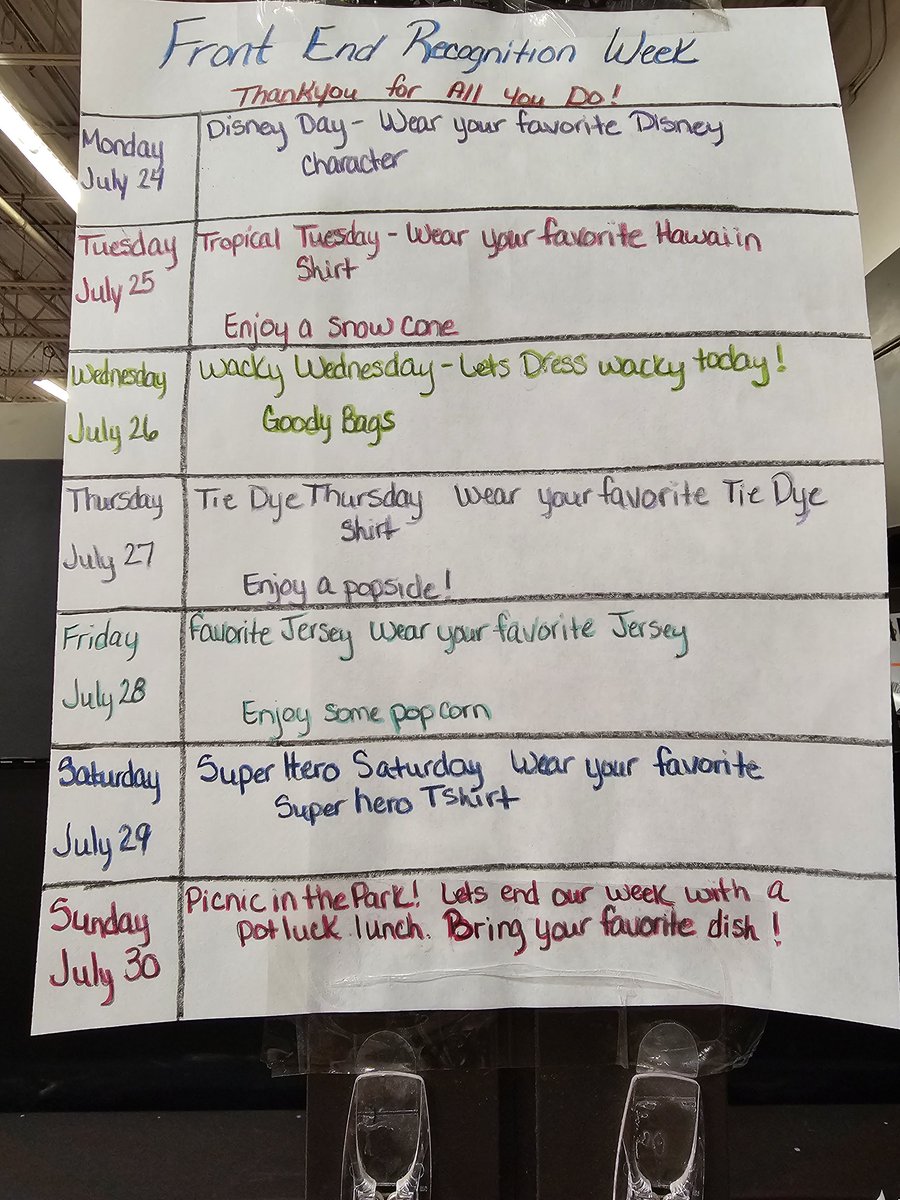 Front End Recognition Week
Thankyou for All You Do!
Monday
July 24
Disney Day - Wear your favorite Disney
character
Tuesday
July 25
Tropical Tuesday - Wear your favorite Hawaiin
Shirt
Enjoy a snow cone
Wednesday
July 26
Wacky Wednesday - Lets Dress wacky today!
Goody Bags
Thursday
July 27
Tie Dye Thursday Wear your favorite Tie Dye
Shirt
Enjoy a popside!
Friday
July 28
Favorite Jersey Wear your favorite Jersey
Enjoy some popcorn
Saturday
July 29
Super Hero Saturday Wear your favorite
Super hero Tshirt
Sunday
July 30
Picnic in the Park! Lets end our week with a
potluck lunch. Bring your favorite dish!